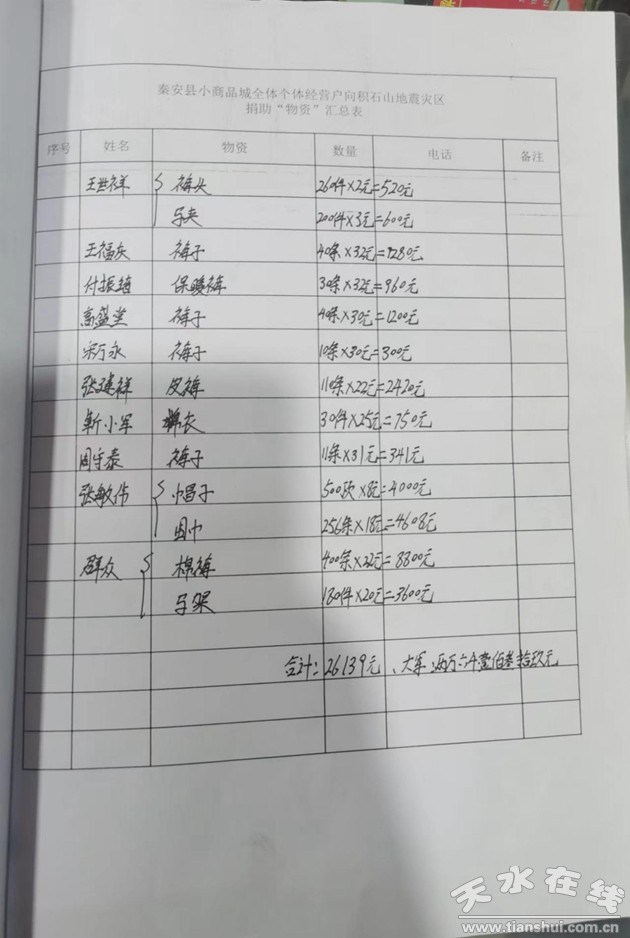 秦安县小商品城全体个体经营户向积石山地震灾区
捐助“物资”汇总表
序号 姓名 物资 数量 电话 备注
王世祥 裤头 260件×2元=520元
马夹 200件×3元=600元
王福庆 裤子 40条×32元=1280元
付振 保暖裤 30条×32元=960元
高盛堂 裤子 40条×30元=1200元
宋万永 裤子 10条×30元=300元
张建祥 皮裤 110条×22元=2420元
靳小军 棉衣 30件×25元=750元
周守泰 裤子 11条×31元=341元
张敏伟 帽子 500顶×8元=4000元
围巾 256条×18元=4608元
群众 棉裤 400条×22元=8800元
马甲 180件×20元=3600元
合计:26139元、大写:两万六千壹佰叁拾玖元
天水在线
www.tianshui.com.cn